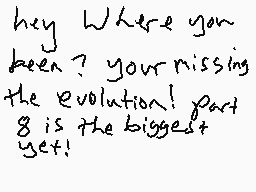 hey Where you
been? your missing
the evolution! part
8 is the biggest
yet!